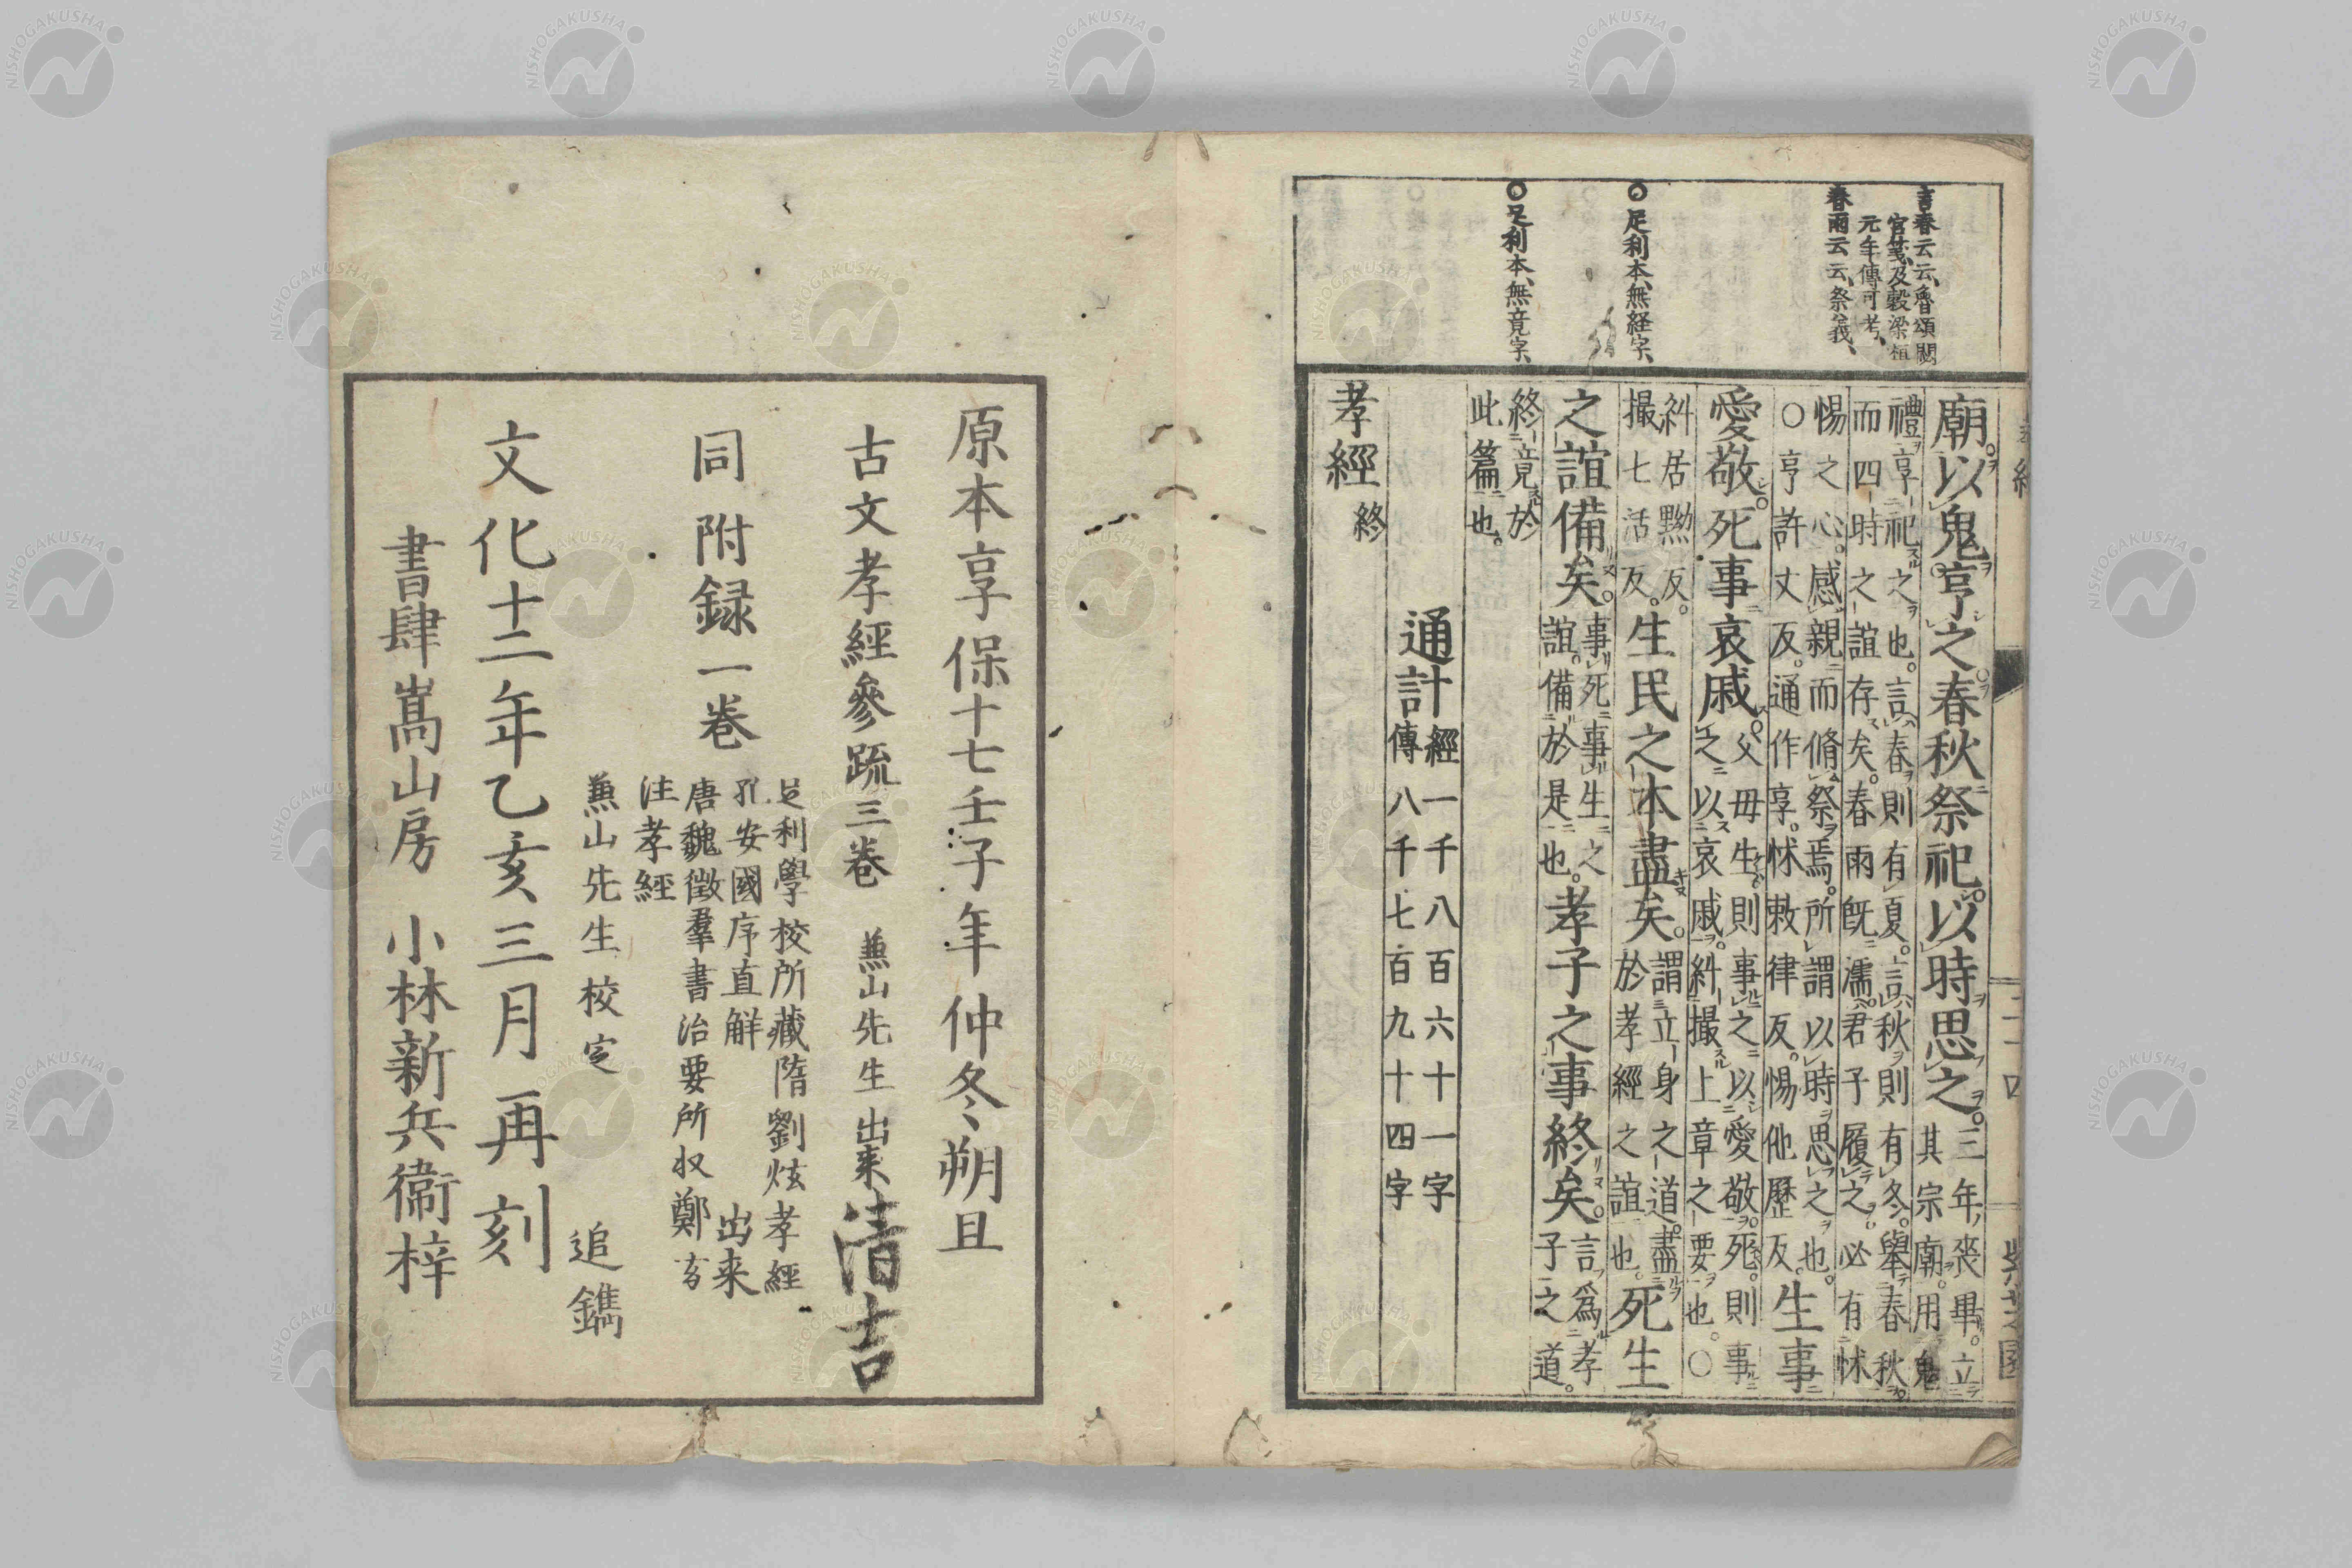 言春云云、魯頌閟
宮箋、及穀梁桓
元年傳可考、
春雨云云、祭義、
○足利本、無経字、
○足利本、無竟字、
廟。以鬼亨之春秋祭祀。以時思之。三年喪畢。立
其宗廟。用鬼
禮亨祀之也。言春則有夏。言秋則有冬。舉春秋
而四時之誼存矣。春雨既濡。君子履之。必有怵
惕之心。感親而脩祭焉。所謂以時思之也。
○亨許丈反。通作享。怵敕律反。惕他歷反。生事
愛敬。死事哀戚。父母生則事之以愛敬。死。則事
之以哀戚。糾撮上章之要也。○
糾居黝反。
撮七活反。生民之本盡矣。謂立身之道。盡
於孝經之誼也。死生
之誼備矣。事死事生之
誼。備於是也。孝子之事終矣。言爲孝
子之道。
終竟於
此篇也。
通計 經一千八百六十一字
傳八千七百九十四字
孝經 終
原本享保十七壬子年仲冬朔旦
古文孝經參疏三卷 蕉山先生 出来 清吉
同附録一卷 足利學校所藏隋劉炫孝經
孔安國序直解 出来
唐魏徵羣書治要所収鄭玄
注孝經
蕉山先生校定 追鐫
文化十二年乙亥三月再刻
書肆嵩山房 小林新兵衞梓
NISHOGAKUSHA